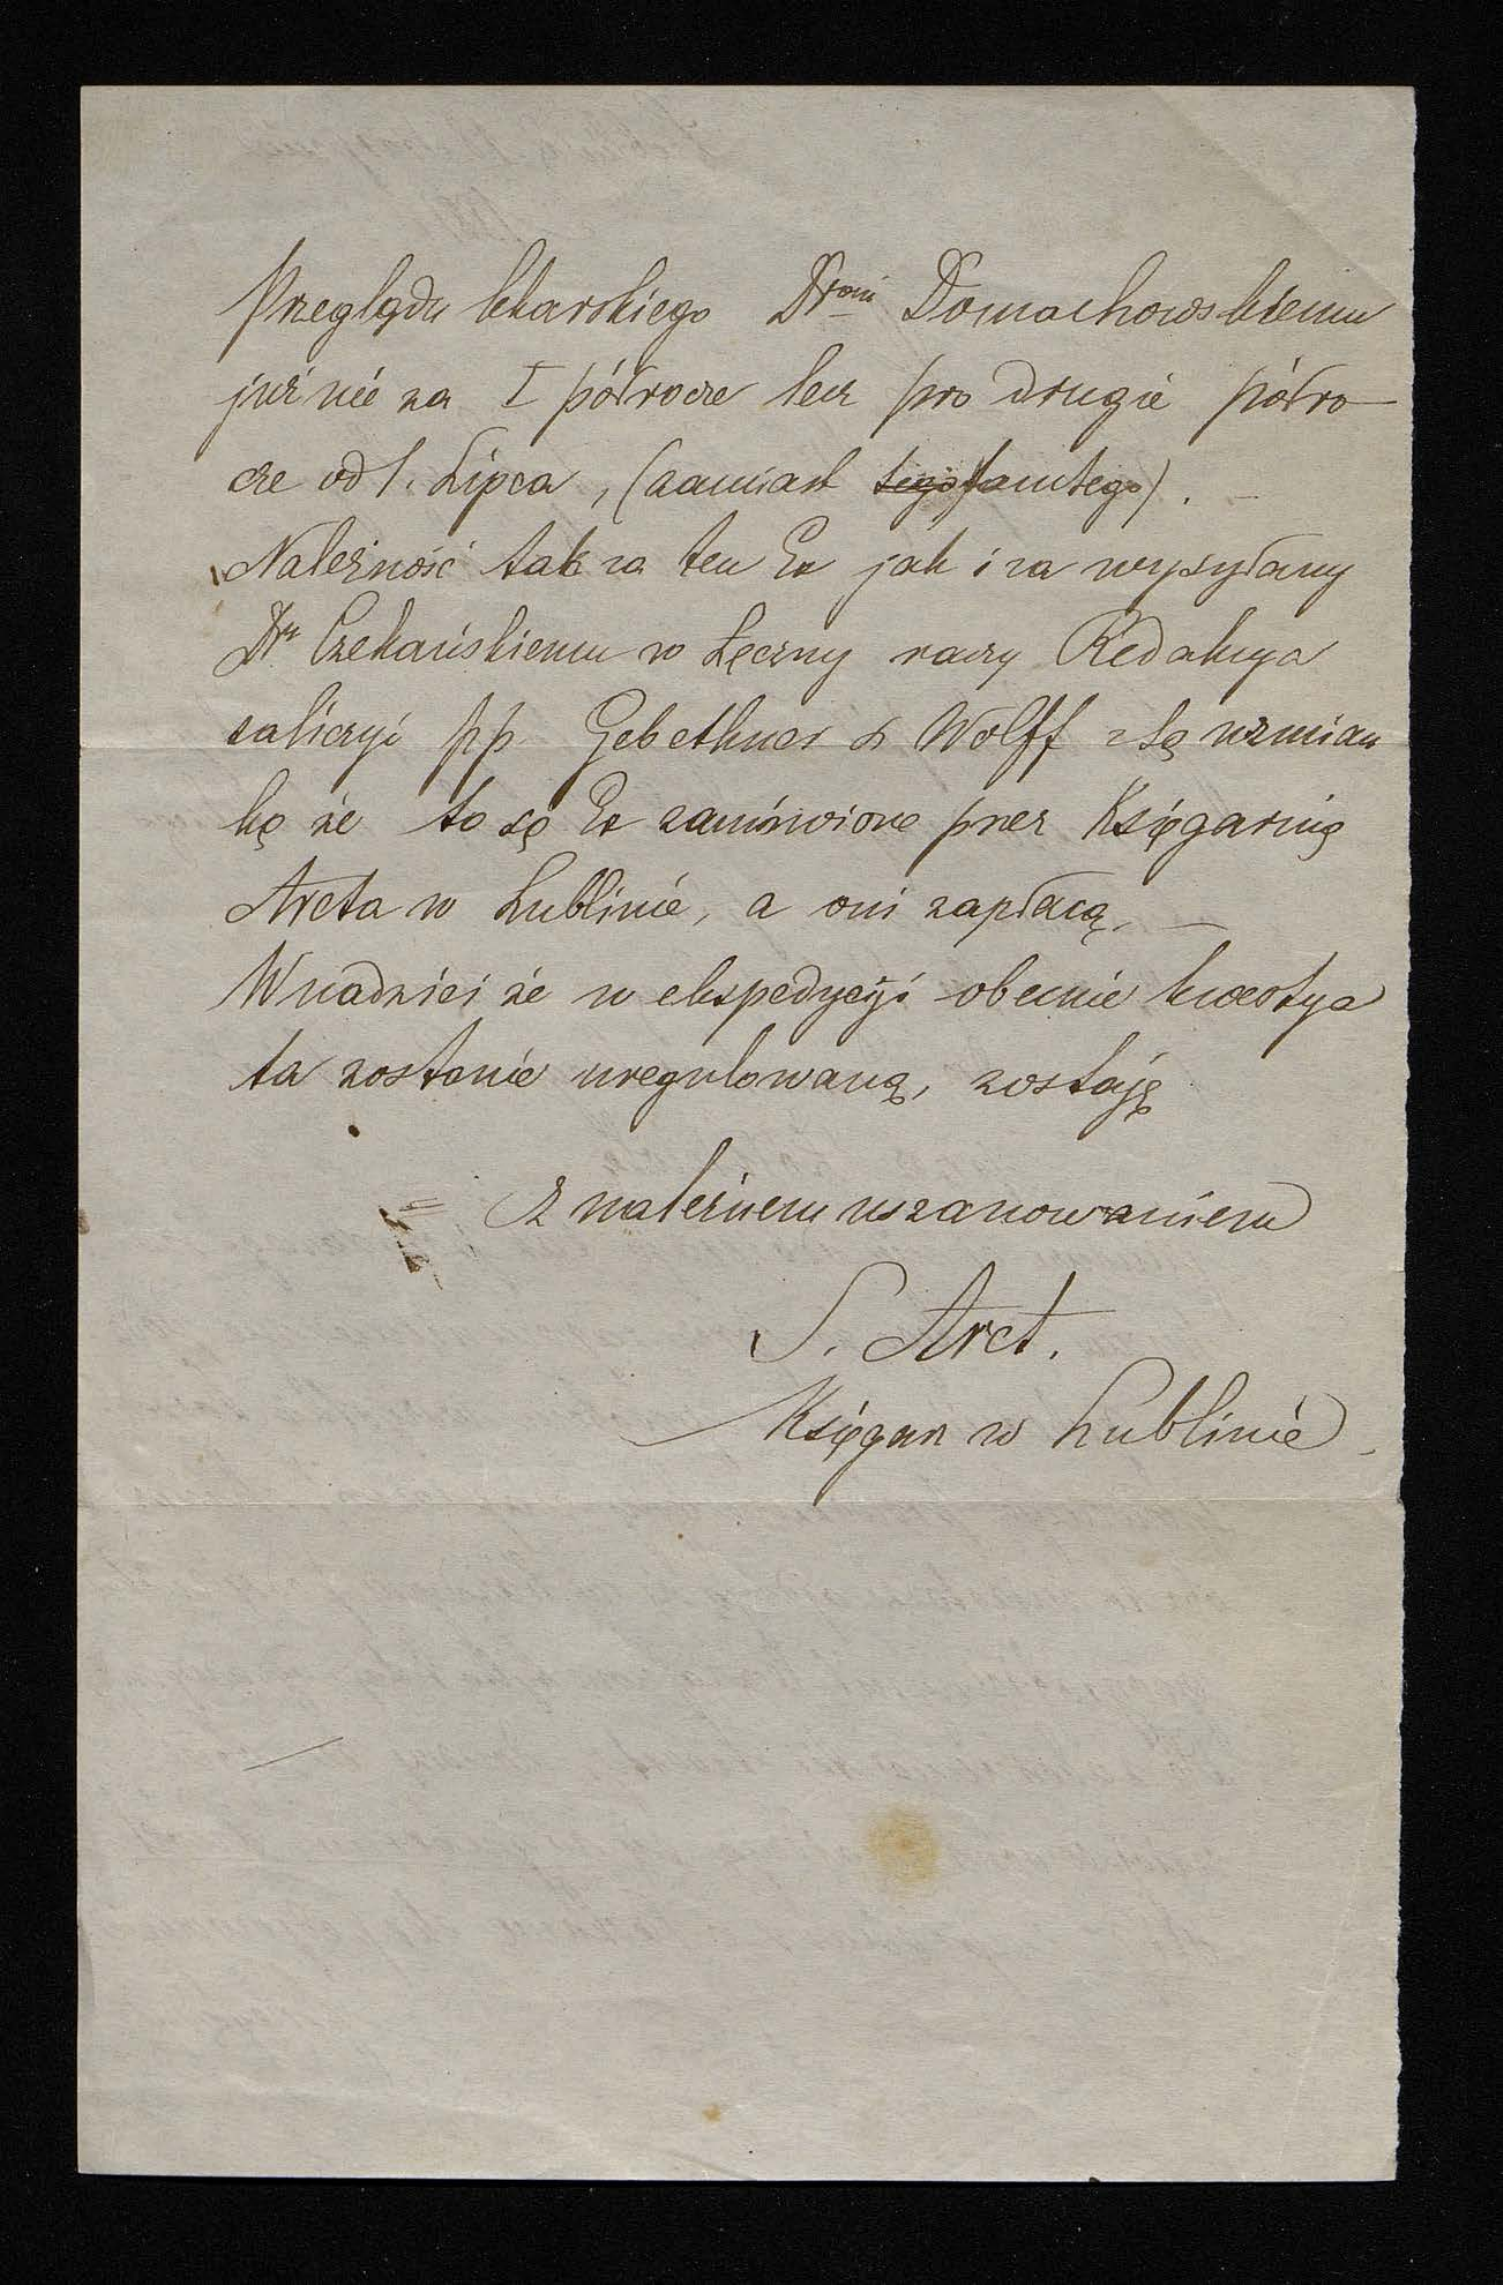 Przeglądu lekarskiego Drowi Domachowskiemu
już nie za I półrocze lecz pro drugie półro-
cze od 1. Lipca, (zamiast tego tamtego). —
Należność tak za ten Ex jak i za wysyłany
Dr Czekańskiemu w Łęczny raczy Redakcya
zaliczyć pp. Gebethner & Wolff z tą wzmian
ką że to są Ex zamówione przez Księgarnię
Arcta w Lublinie, a oni zapłacą. —
W nadziei że w ekspedycyi obecnie kwestya
ta zostanie uregulowaną, zostaję
z należnem uszanowaniem
S. Arct.
Księgarz w Lublinie